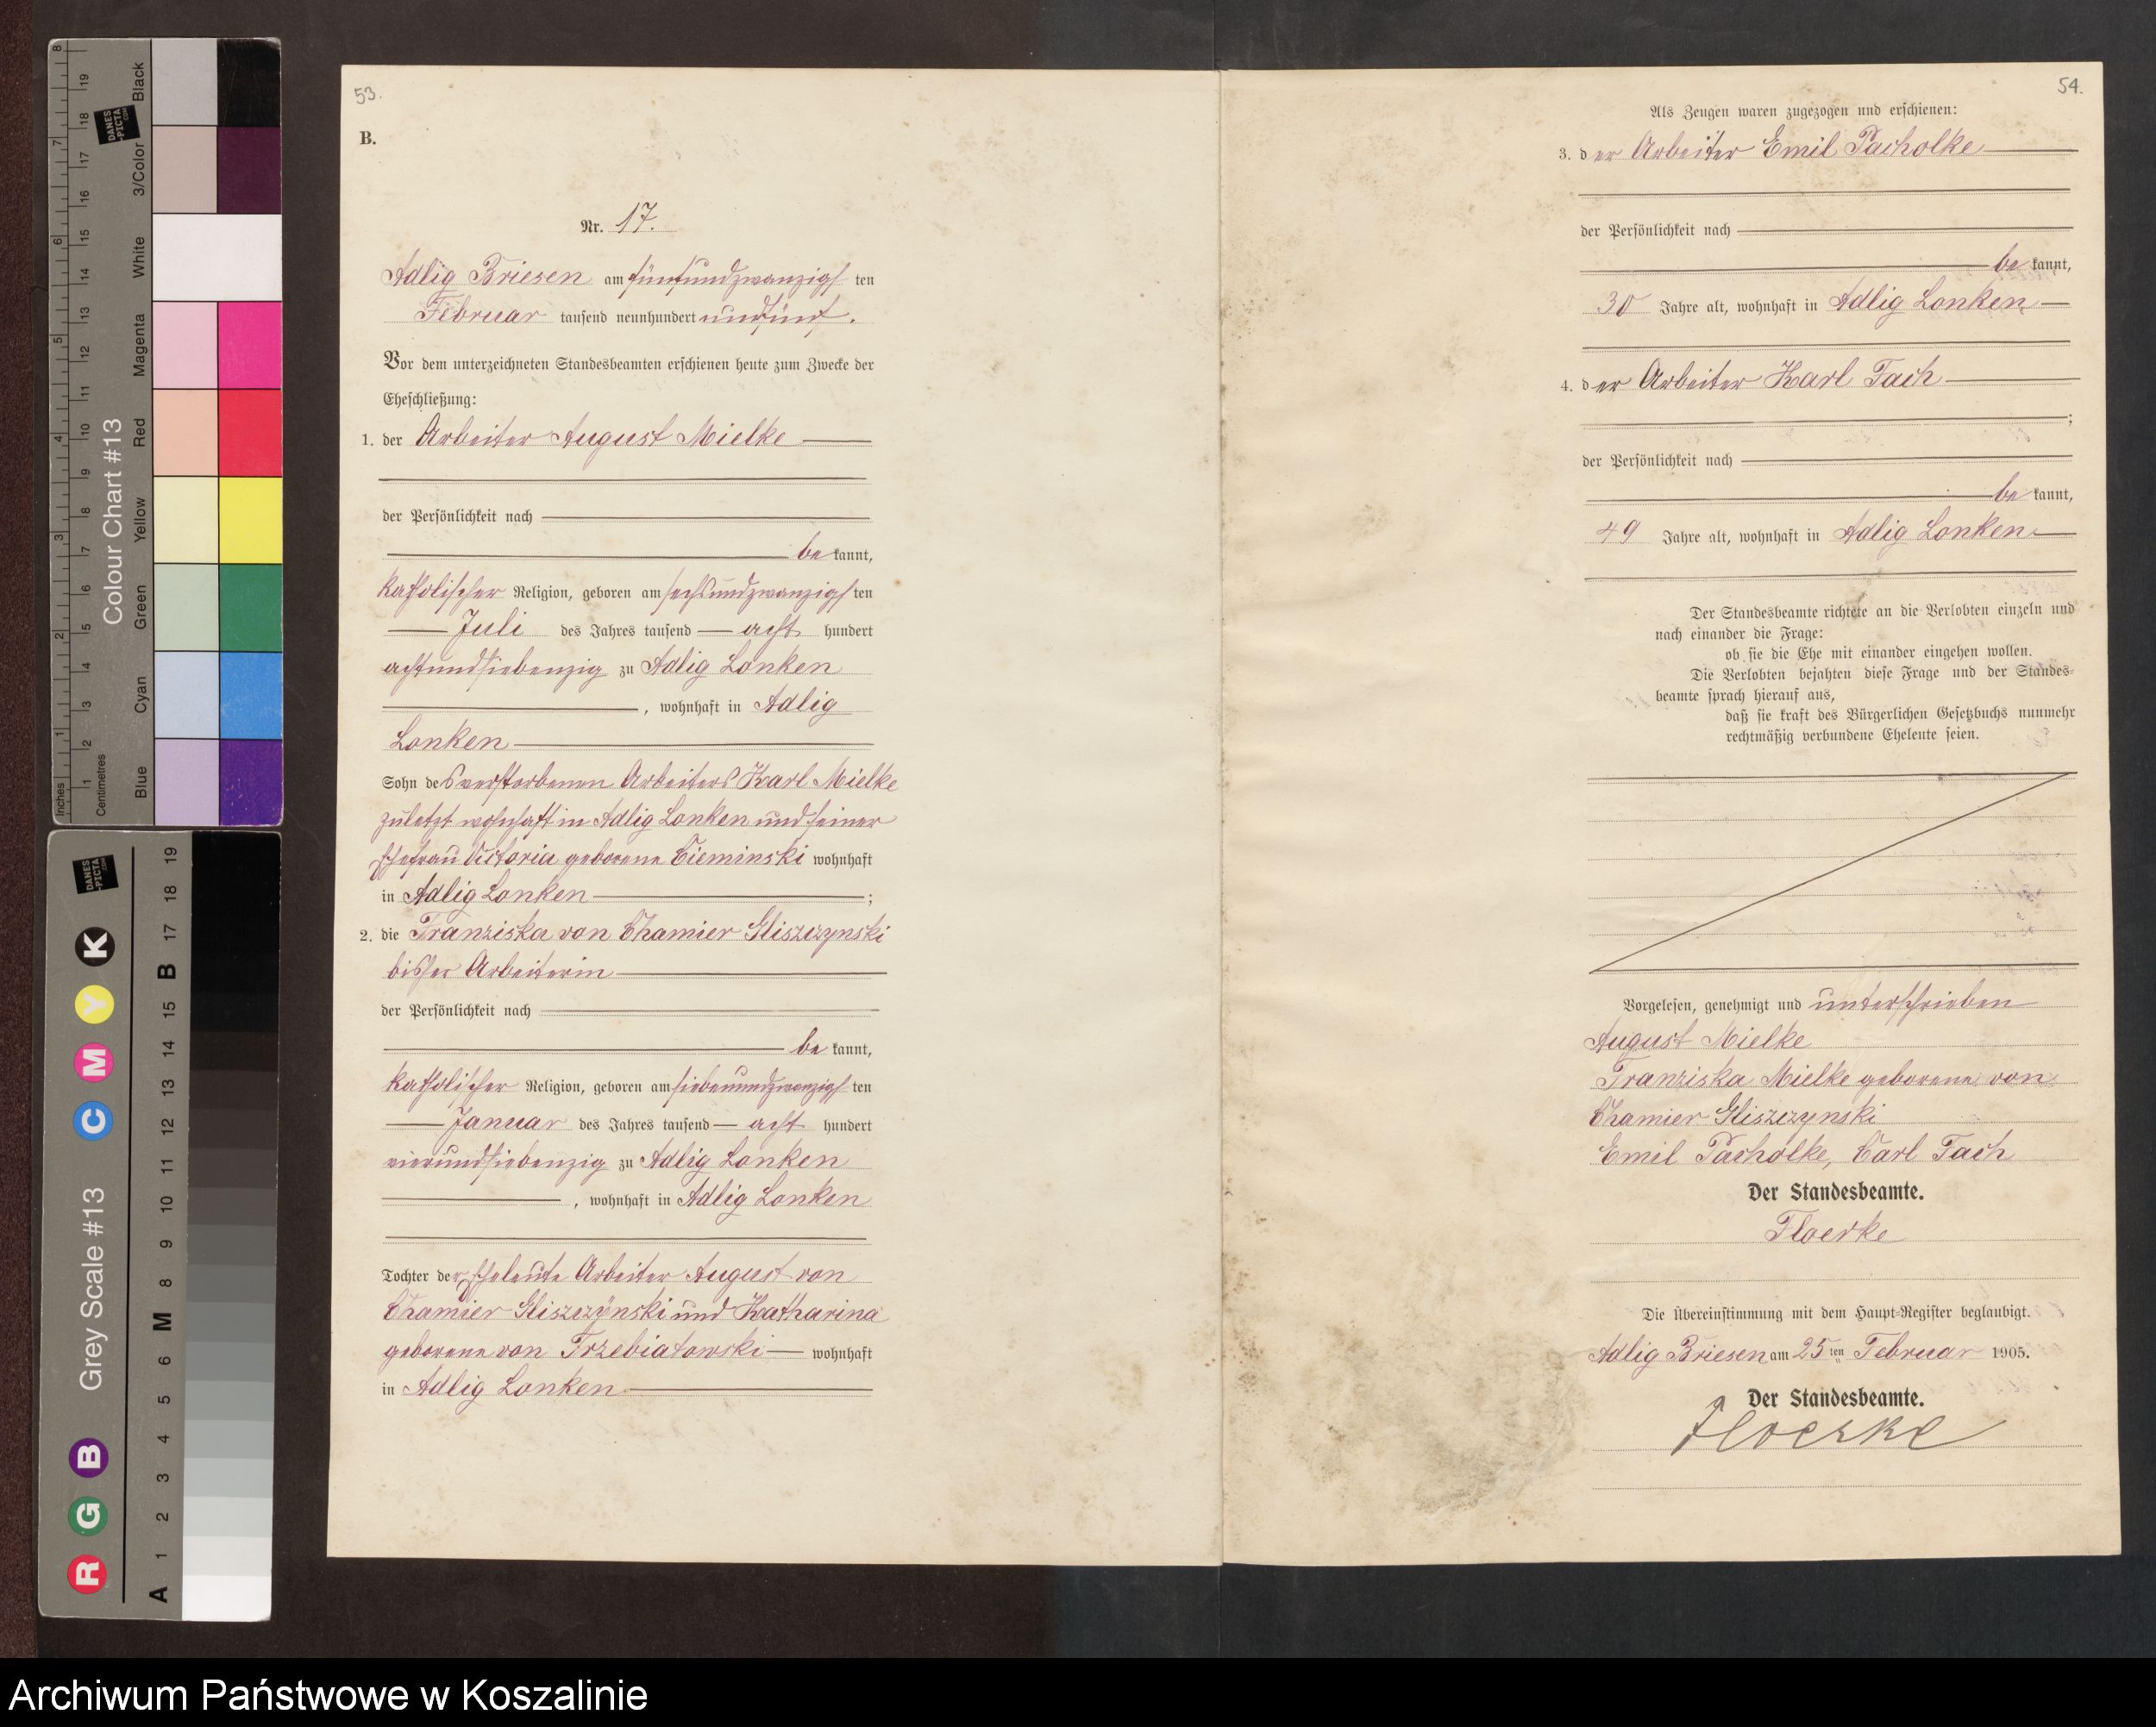 53.
B.
Nr. 17.
Adlig Briesen am fünfundzwanzigsten
Februar tausend neunhundert undfünf.
Vor dem unterzeichneten Standesbeamten erschienen heute zum Zwecke der
Eheschließung:
1. der Arbeiter August Mielke
der Persönlichkeit nach
bekannt,
katholischer Religion, geboren am sechsundzwanzigsten
Juli des Jahres tausend acht hundert
achtundsiebenzig zu Adlig Lonken
, wohnhaft in Adlig
Lonken
Sohn des verstorbenen Arbeiters Karl Mielke
zuletzt wohnhaft in Adlig Lonken und seiner
Ehefrau Victoria geborene Cieminski wohnhaft
in Adlig Lonken ;
2. die Franziska von Chamier Gliszczynski
bisher Arbeiterin
der Persönlichkeit nach
bekannt,
katholischer Religion, geboren am siebenundzwanzigsten
Januar des Jahres tausend acht hundert
vierundsiebenzig zu Adlig Lonken
, wohnhaft in Adlig Lonken
Tochter der Eheleute Arbeiter August von
Chamier Gliszczynski und Katharina
geborene von Trzebiatowski wohnhaft
in Adlig Lonken
54.
Als Zeugen waren zugezogen und erschienen:
3. der Arbeiter Emil Pacholke
der Persönlichkeit nach
bekannt,
30 Jahre alt, wohnhaft in Adlig Lonken
4. der Arbeiter Karl Tach
;
der Persönlichkeit nach
bekannt,
49 Jahre alt, wohnhaft in Adlig Lonken
Der Standesbeamte richtete an die Verlobten einzeln und
nach einander die Frage:
ob sie die Ehe mit einander eingehen wollen.
Die Verlobten bejahten diese Frage und der Standes-
beamte sprach hierauf aus,
daß sie kraft des Bürgerlichen Gesetzbuchs nunmehr
rechtmäßig verbundene Eheleute seien.
Vorgelesen, genehmigt und unterschrieben
August Mielke
Franziska Mielke geborene von
Chamier Gliszczynski
Emil Pacholke, Carl Tach
Der Standesbeamte.
Floerke
Die Übereinstimmung mit dem Haupt-Register beglaubigt.
Adlig Briesen am 25ten Februar 1905.
Der Standesbeamte.
Floerke
Inches
Centimetres
Colour Chart #13
Blue
Cyan
Green
Yellow
Red
Magenta
White
3/Color
Black
DANES
-PICTA
.COM
Grey Scale #13
R G B C M Y K
A 1 2 3 4 5 6 M 8 9 10 11 12 13 14 15 B 17 18 19
DANES
-PICTA
.COM
Archiwum Państwowe w Koszalinie